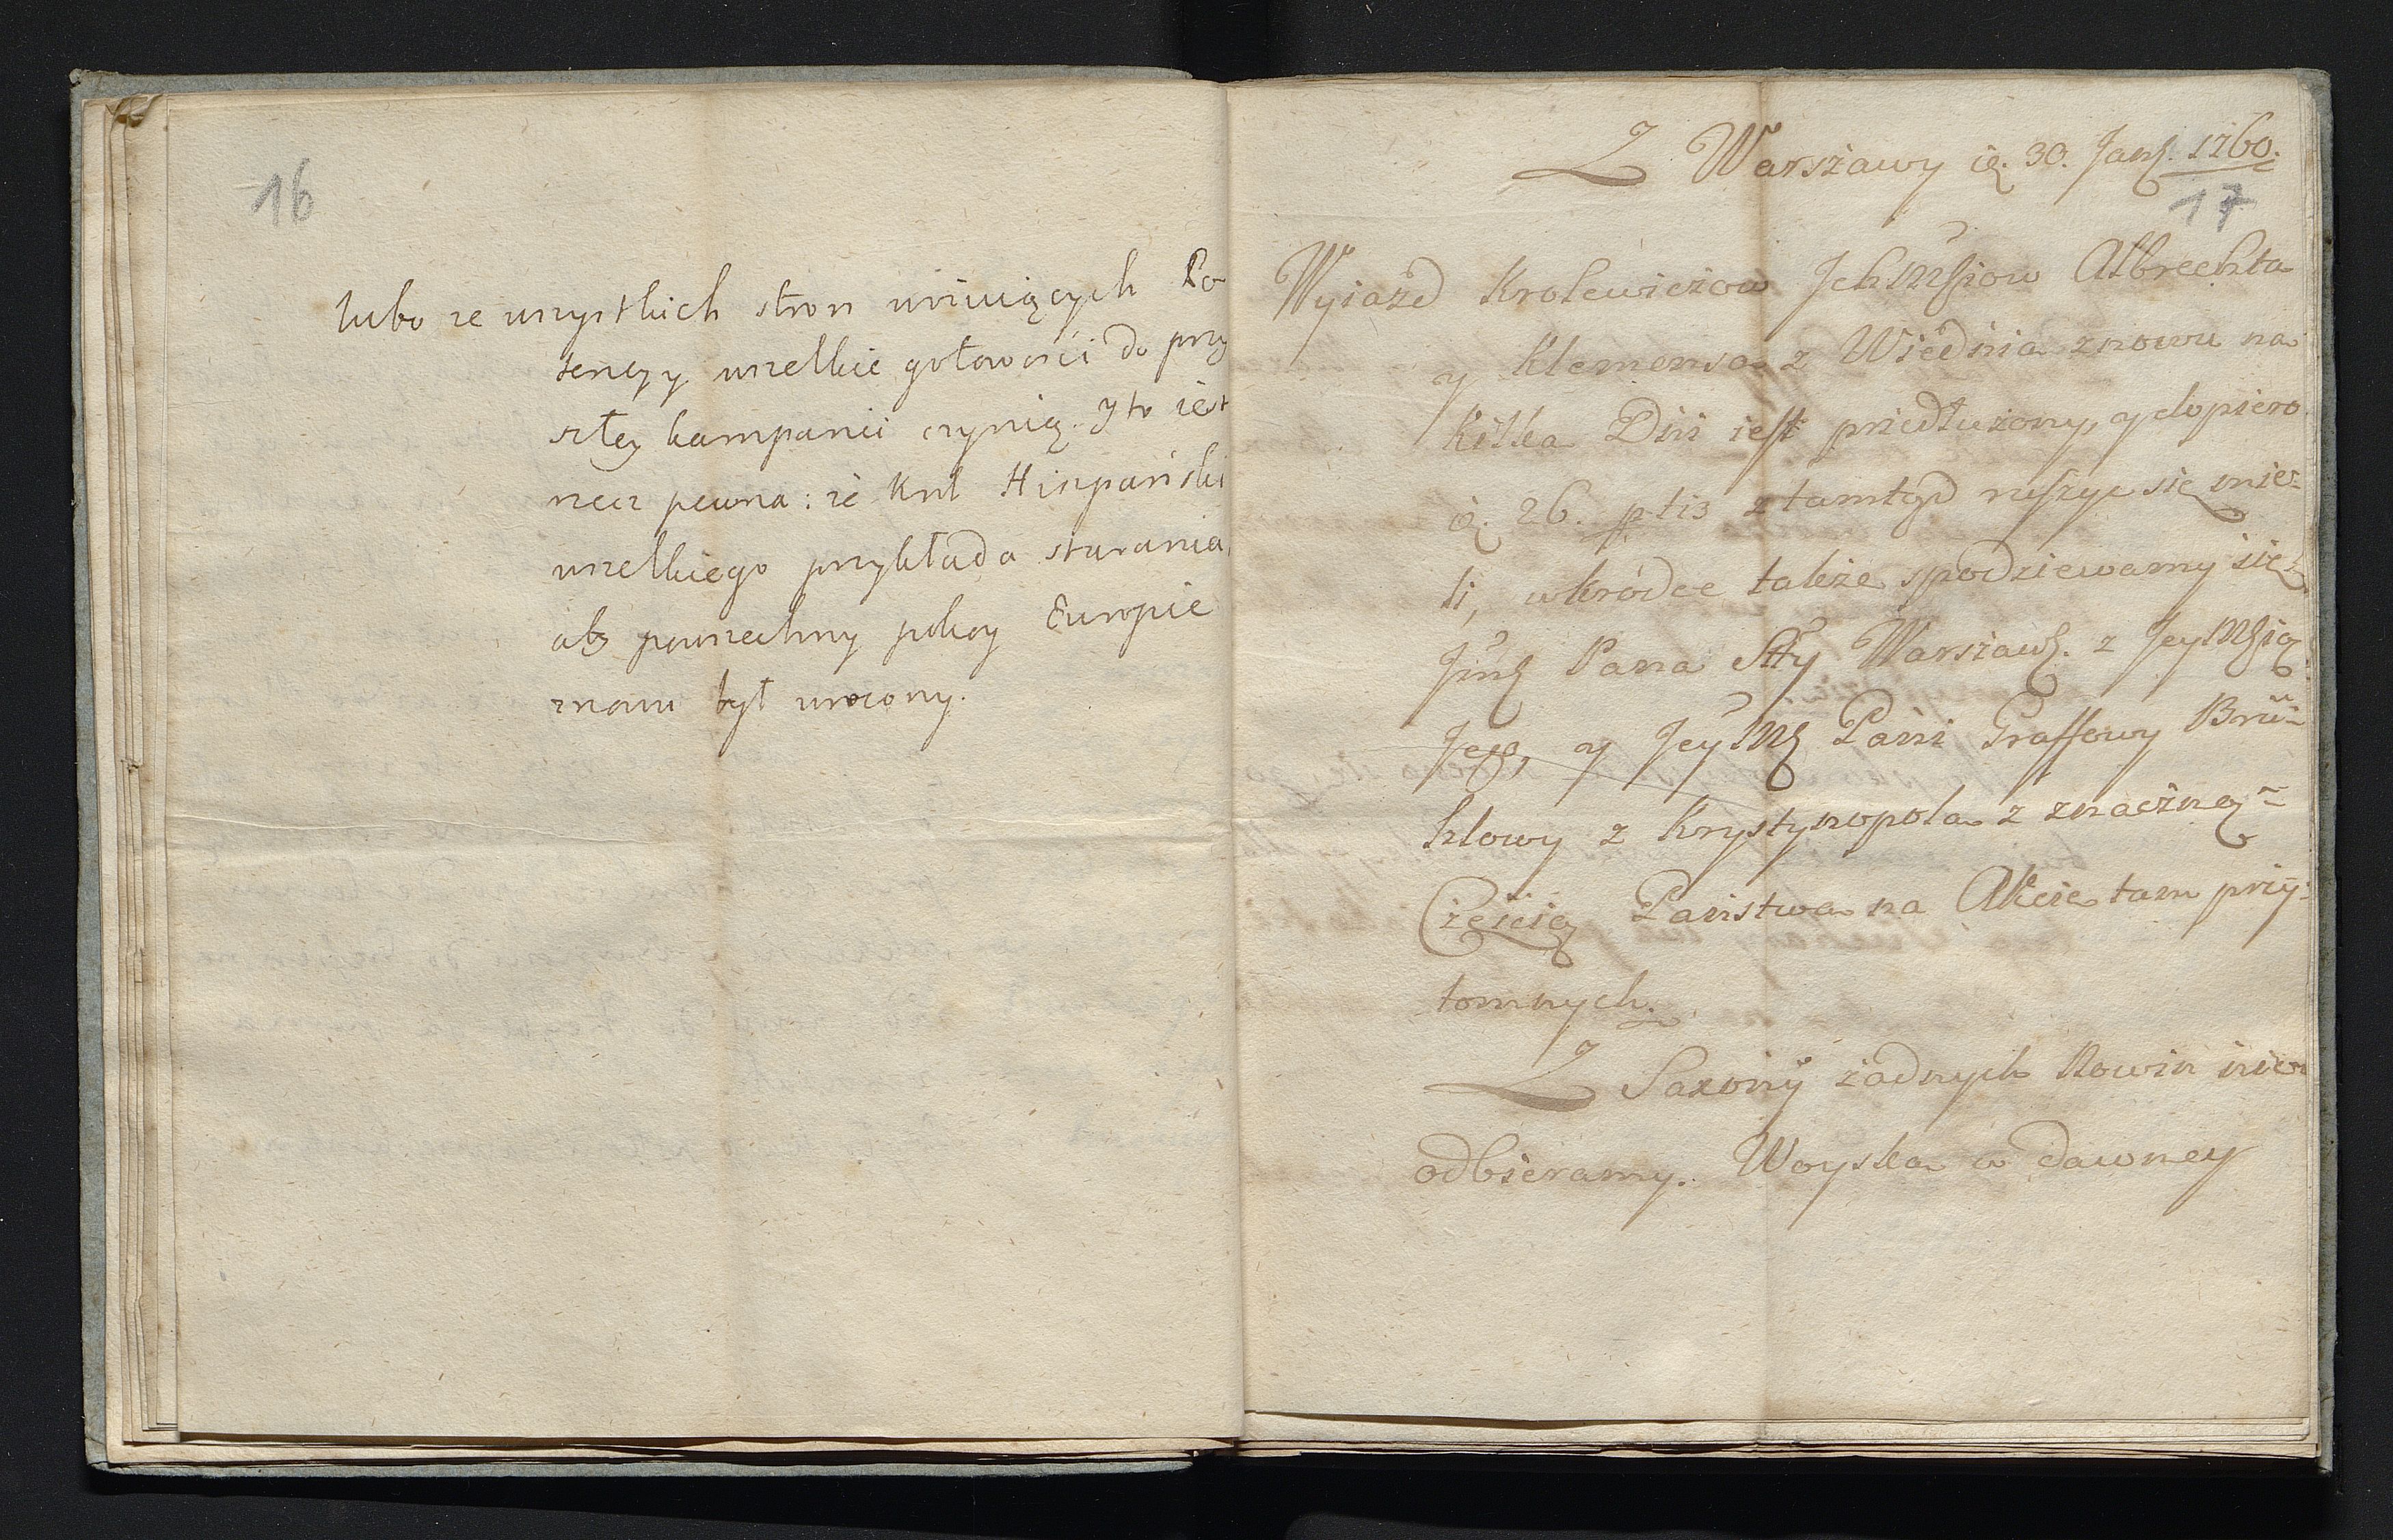 16
lubo ze wszystkich stron woiuiących Po
tencyy wszelkie gotowości do przy
szłey kampanii czynią. Y to iest
rzecz pewna: że Krol Hiszpański
wszelkiego przykłada starania,
aby powszechny pokoy Europie
znowu był wrocony.
Z Warszawy 30. Jan. 1760.
17
Wyiazd Krolewiczow Ich Msciow Albrechta
y Klemensa z Wiednia znowu na
kilka Dni iest przedłużony, y dopiero
26. ztamtąd ruszyc się mie-
li, wkródce także spodziewamy się
Pana Stty Warszaw. z JeyMscią
Jego, y Jey Pani Graffowy Brü-
hlowy z Krystynopola z znaczną
Częscią Państwa na Akcie tam przy-
tomnych.
Z Saxonÿ żadnych Nowin nie
odbieramy. Woyska w dawney